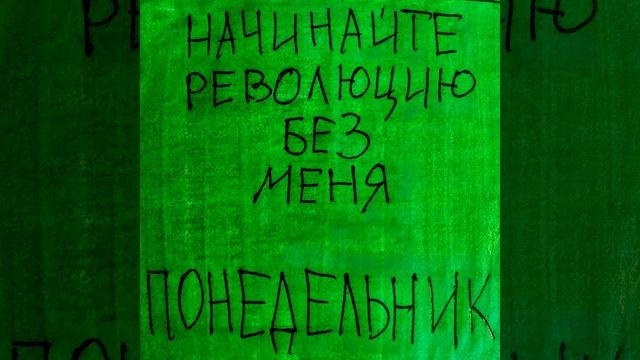 НАЧИНАЙТЕ
РЕВОЛЮЦИЮ
БЕЗ
МЕНЯ
ПОНЕДЕЛЬНИК